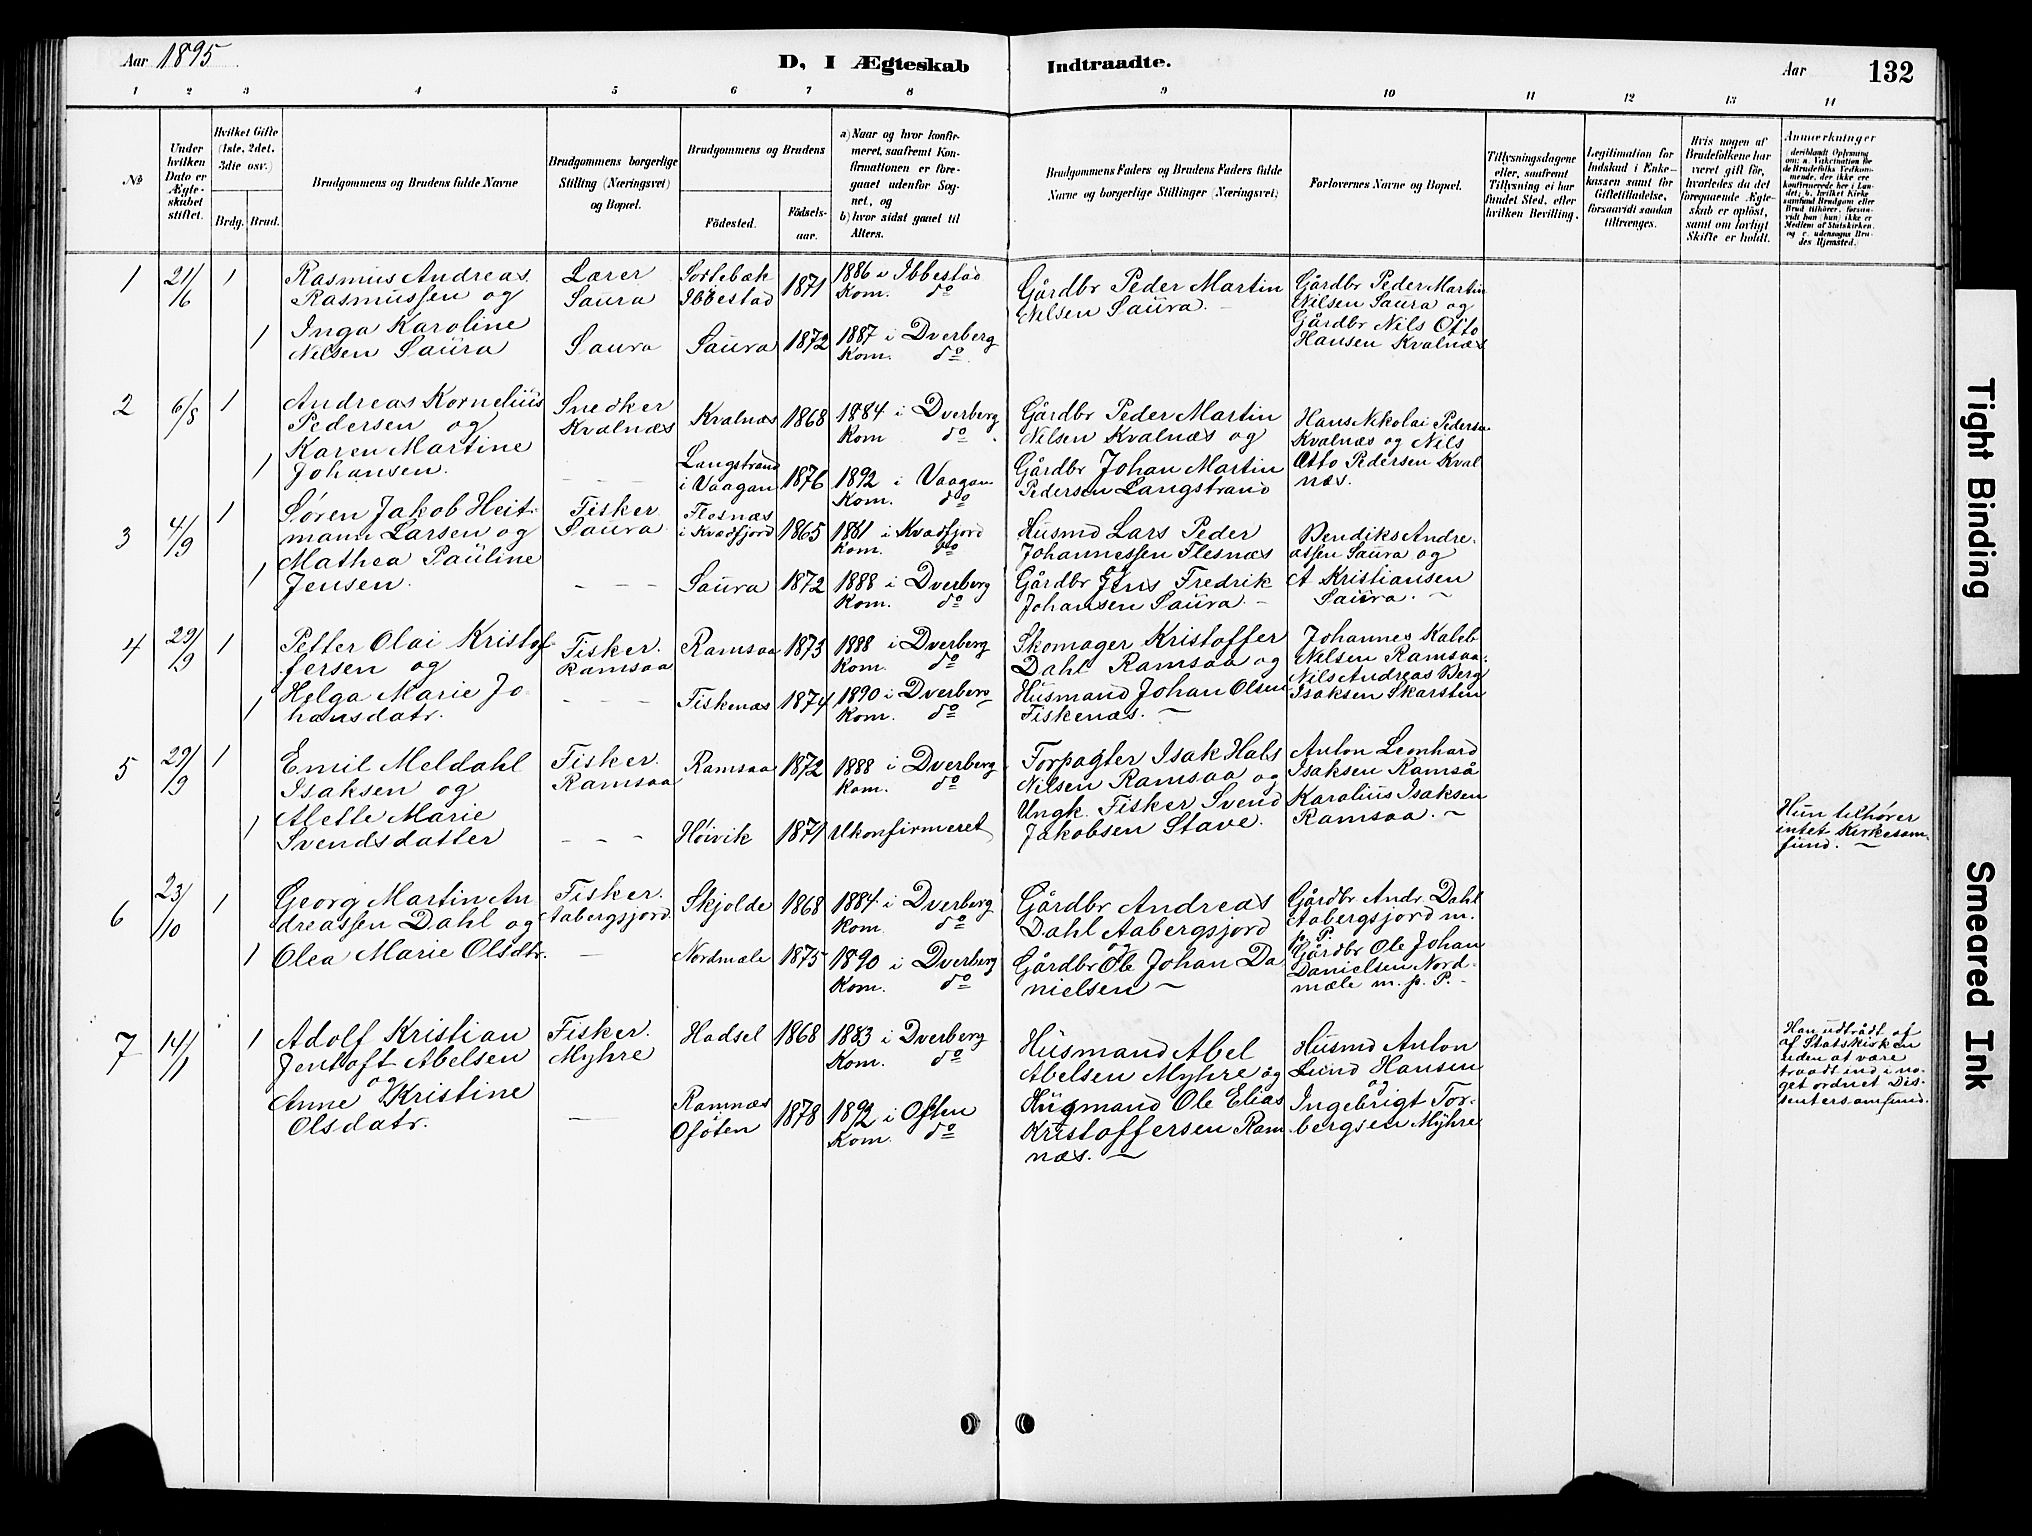 Aar 1895
D, I Ægteskab Indtraadte.
Aar 132
1 2 3 4 5 6 7 8 9 10 11 12 13 14
No
Under hvilken Dato er Ægteskabet stiftet.
Hvilket Gifte (1ste, 2det, 3die osv.)
Brdg. Brud.
Brudgommens og Brudens fulde Navne
Brudgommens borgerlige Stilling (Næringsvei) og Bopæl.
Brudgommens og Brudens
Födested.
Födselsaar.
a) Naar og hvor konfirmeret, saafremt Konfirmationen er foregaaet udenfor Sognet, og
b) hvor sidst gaaet til Alters.
Brudgommens Faders og Brudens Faders fulde Navne og borgerlige Stillinger (Næringsvei)
Forlovernes Navne og Bopæl.
Tillysningsdagene eller, saafremt Tillysning ei har fundet Sted, efter hvilken Bevilling.
Legitimation for Indskud i Enkekassen samt for Giftetilladelse, forsaavidt saadan tiltrænges.
Hvis nogen af Brudefolkene har været gift för, hvorledes da det foregaaende Ægteskab er oplöst, samt om lovligt Skifte er holdt.
Anmerkninger
deriblandt Oplysning om: a. Vakcination for de Brudefolks Vedkommende, der ikke ere konfirmerede her i Landet; b. hvilket Kirkesamfund Brudgom eller Brud tilhörer, forsaavidt han (hun) ikke er Medlem af Statskirken, og c. udensogns Brudes Hjemsted.
1 21/6 1
Rasmus Andreas
Rasmussen og
1 Inga Karoline
Nilsen Saura
Lærer
Saura
Saura
Sørlebæk
Ibbestad 1871
Saura 1872
1886 i Ibbestad
Kom. do
1887 i Dverberg
Kom. do
Gårdbr Peder Martin
Nilsen Saura. -
Gårdbr Peder Martin
Nilsen Saura og
Gårdbr Nils Otto
Hansen Kvalnæs
2 6/8 1
Andreas Kornelius
Pedersen og
Karen Martine
1 Johansen.
Snedker
Kvalnæs
- - -
Kvalnæs 1868
Langstrand
i Vaagan 1876
1884 i Dverberg
Kom do
1892 i Vaagan
Kom. do
Gårdbr Peder Martin
Nilsen Kvalnæs og
Gårdbr Johan Martin
Pedersen Langstrand
Hans Nikolai Pedersen
Kvalnæs og Nils
Otto Pedersen Kval
næs.
3 4/9 1
Søren Jakob Heit-
mann Larsen og
Mathea Pauline
1 Jensen.
Fisker
Saura
- - -
Flesnæs
i Kvædfjord 1865
Saura 1872
1881 i Kvædfjord
Kom. do
1888 i Dverberg
Kom. do
Husmd Lars Peder
Johannessen Flesnæs
og
Gårdbr Jens Fredrik
Johansen Saura. -
Bendiks Andre-
assen Saura og
A Kristiansen
Saura. -
4 29/9 1
Petter Olai Kristof-
fersen og
Helga Marie Jo
1 hansdatr.
Fisker.
Ramsaa
- - -
Ramsaa 1873
Fiskenæs 1874
1888 i Dverberg
Kom. do
1890 i Dverberg
Kom. do
Skomager Kristoffer
Dahl Ramsaa og
Husmand Johan Olsen
Fiskenæs. -
Johannes Kaleb
Nilsen Ramsaa.
Nils Andreas Berg
Isaksen Skarsten
5 29/9 1
Emil Meldahl
Isaksen og
Mette Marie
1 Svendsdatter
Fisker.
Ramsaa
- - -
Ramsaa 1872
Høivik 1871
1888 i Dverberg
Kom. do
Ukonfirmeret
Forpagter Isak Hals
Nilsen Ramsaa og
Ungk. Fisker Svend
Jakobsen Stave.
Anton Leonhard
Isaksen Ramså
Karolius Isaksen
Ramsaa. -
Hun tilhører
intet Kirkesam-
fund. -
6 23/10 1
Georg Martin An
dreassen Dahl og
1 Olea Marie Olsdtr.
Fisker.
Aabergsjord.
-
Skjolde 1868
Nordmæle 1875
1884 i Dverberg
Kom. do
1890 i Dverberg
Kom. do
Gårdbr Andreas
Dahl Aabergsjord
og
Gårdbr Ole Johan Da
nielsen -
Gårdbr Andr. Dahl
Aabergsjord m.
p. P.
Gårdbr Ole Johan
Danielsen Nord-
mæle m. p. P. -
7 14/11
1 Adolf Kristian
Jentoft Abelsen
og
Anne Kristine
Olsdatr.
Fisker.
Myhre
-
Hadsel 1868
Ramnæs
Ofoten 1878
1883 i Dverberg
Kom. do
1892 i Ofoten
Kom. do
Husmand Abel
Abelsen Myhre og
Husmand Ole Elias
Kristoffersen Ram
næs. -
Husmd Anton
Lund Hansen
og
Ingebrigt Tor-
bergsen Myhre
Han udtrådt af
af Statskirken
uden at være
traadt ind i no-
get ordnet Dis-
sentersamfund.
Tight Binding
Smeared Ink